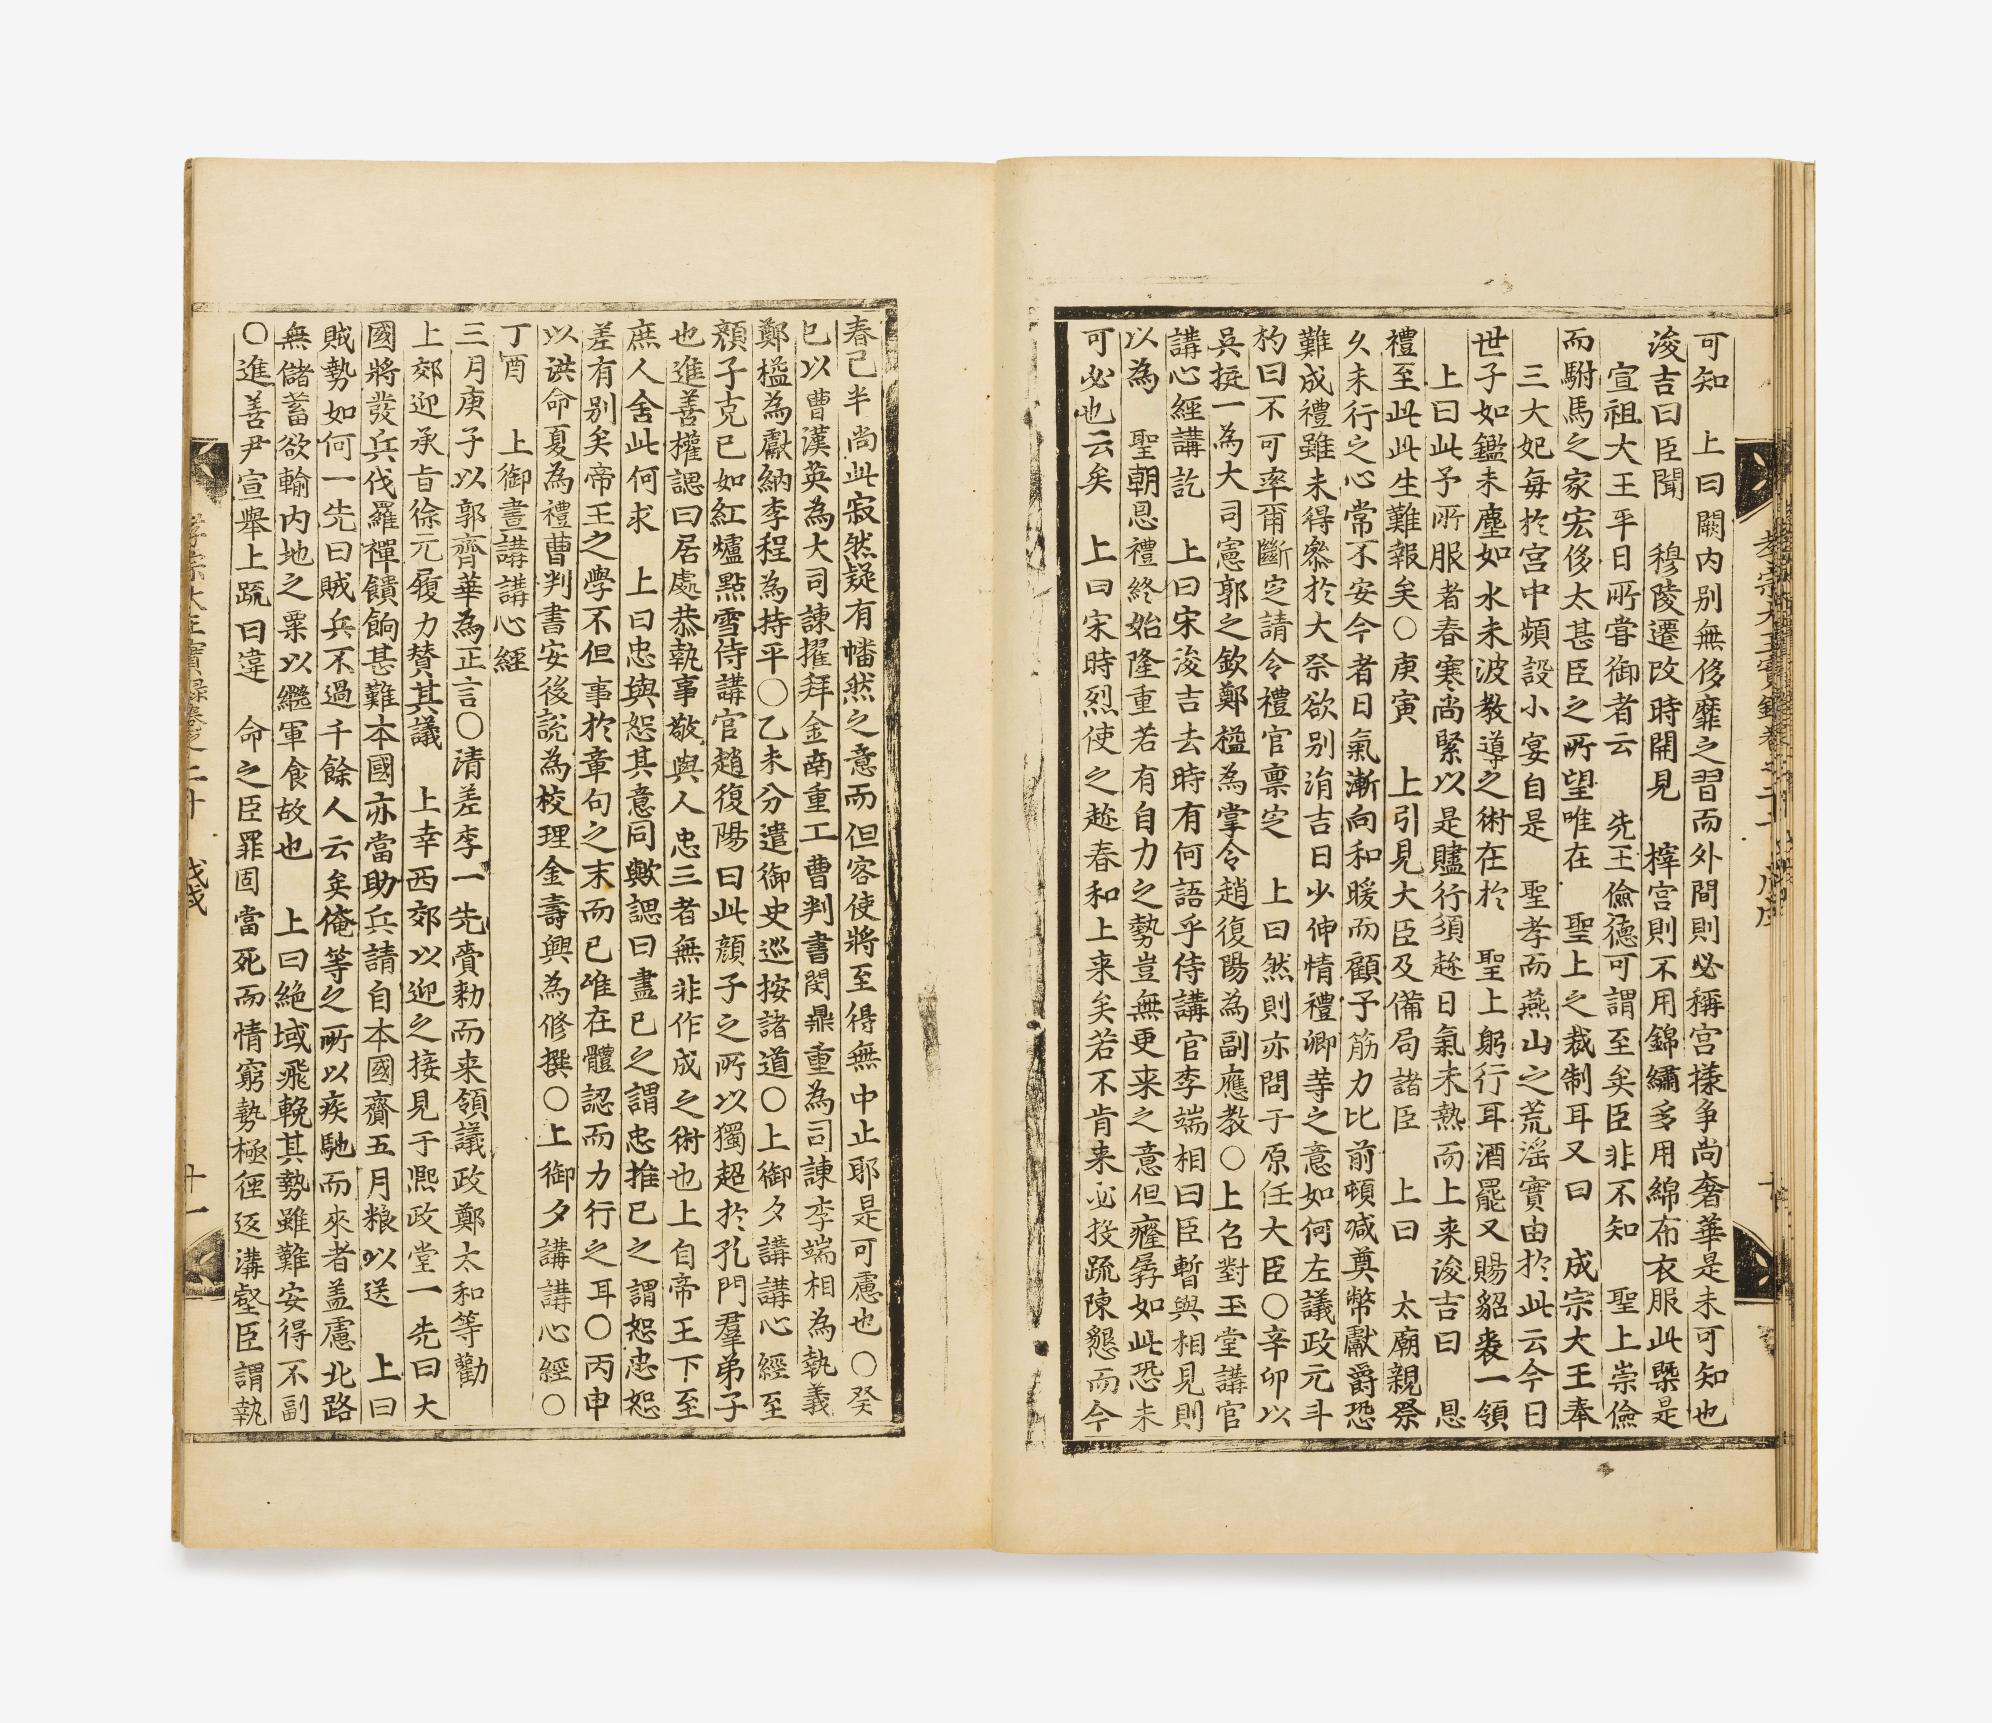 可知　上曰闕内别無侈靡之習而外間則必稱宫樣争尚奢華是未可知也
浚吉曰臣聞　穆陵遷改時開見　梓宫則不用錦繡多用綿布衣服此槩是
宣祖大王平日所嘗御者云　先王儉德可謂至矣臣非不知　聖上崇儉
而駙馬之家宏侈太甚臣之所望唯在　聖上之裁制耳又曰　成宗大王奉
三大妃每於宫中頻設小宴自是　聖孝而燕山之荒滛實由於此云今日
世子如鑑未塵如水未波教導之術在於　聖上躬行耳酒罷又賜貂裘一領
上曰此予所服者春寒尚緊以是贐行須趂日氣未熱而上来浚吉曰　恩
禮至此此生難報矣〇庚寅　上引見大臣及備局諸臣　上曰　太廟親祭
久未行之心常不安今者日氣漸向和暖而顧予筋力比前頓減奠幣獻爵恐
難成禮雖未得叅於大祭欲别涓吉日少伸情禮卿等之意如何左議政元斗
杓曰不可率爾斷定請令禮官禀定　上曰然則亦問于原任大臣〇辛卯以
吳挺一為大司憲郭之欽鄭榏為掌令趙復陽為副應教〇上召對玉堂講官
講心經講訖　上曰宋浚吉去時有何語乎侍講官李端相曰臣暫與相見則
以為　聖朝恩禮終始隆重若有自力之勢豈無更来之意但癃孱如此恐未
可必也云矣　上曰宋時烈使之趂春和上来矣若不肯来必投䟽陳懇而今
春已半尚此寂然疑有幡然之意而但客使將至得無中止耶是可慮也〇癸
巳以曹漢英為大司諫擢拜金南重工曹判書閔鼎重為司諫李端相為執義
鄭榏為獻納李程為持平〇乙未分遣御史巡按諸道〇上御夕講講心經至
顔子克已如紅爐點雪侍講官趙復陽曰此顔子之所以獨超於孔門羣弟子
也進善權諰曰居處恭執事敬與人忠三者無非作成之術也上自帝王下至
庶人舍此何求　上曰忠與恕其意同歟諰曰盡已之謂忠推已之謂恕忠恕
差有别矣帝王之學不但事於章句之末而已唯在體認而力行之耳〇丙申
以洪命夏為禮曹判書安後說為校理金壽興為修撰〇上御夕講講心經〇
丁酉　上御晝講講心經
三月庚子以郭齊華為正言〇清差李一先賫勑而来領議政鄭太和等勸
上郊迎承旨徐元履力賛其議　上幸西郊以迎之接見于熈政堂一先曰大
國將發兵伐羅禪饋餉甚難本國亦當助兵請自本國齎五月粮以送　上曰
賊勢如何一先曰賊兵不過千餘人云矣俺等之所以疾馳而來者盖慮北路
無儲蓄欲輸内地之粟以繼軍食故也　上曰絶域飛輓其勢雖難安得不副
〇進善尹宣舉上䟽曰違　命之臣罪固當死而情窮勢極徑返溝壑臣謂執